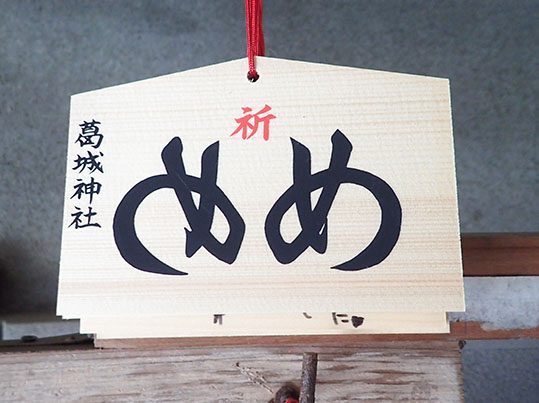 祈
めめ
葛城神社